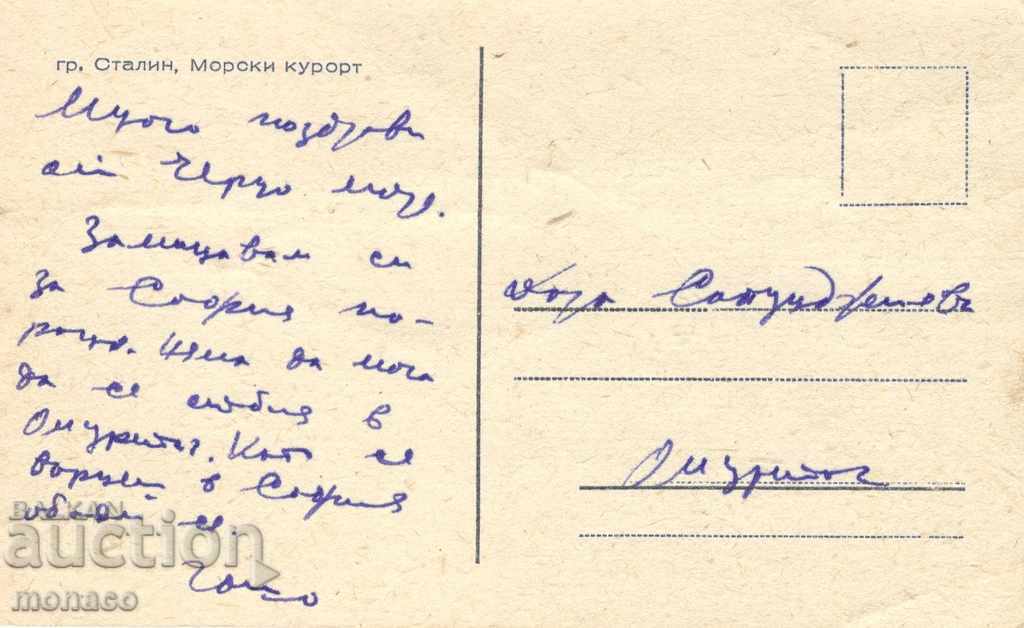 гр. Сталин, Морски курорт
Много поздрави
от Черно море.
Заминавам си
за София по-
рано. Няма да мога
да се отбия в
Омуртаг. Като се
върнеш в София
обади се.
Омуртаг
BALKAN
auction
monaco